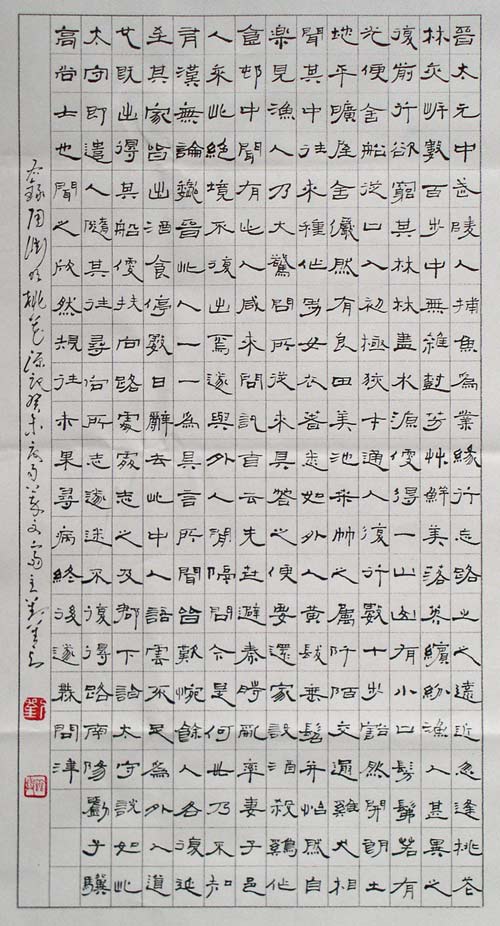 晉太元中武陵人捕魚為業緣行忘路之遠近忽逢桃花
林夾岸數百步中無雜樹芳艸鮮美落英繽紛漁人甚異之
復前行欲窮其林林盡水源便得一山山有小口髣髴若有
光便舍船從口入初極狹才通人復行數十步豁然開朗土
地平曠屋舍儼然有良田美池桑竹之屬阡陌交通雞犬相
聞其中往來種作男女衣著悉如外人黃髮垂髫并怡然自
樂見漁人乃大驚問所從來具答之便要還家設酒殺雞作
食邨中聞有此人咸來問訊自云先世避秦時亂率妻子邑
人來此絕境不復出焉遂與外人間隔問今是何世乃不知
有漢無論魏晉此人一一為具言所聞皆歎惋餘人各復延
至其家皆出酒食停數日辭去此中人語雲不足為外人道
也既出得其船便扶向路處處志之及郡下詣太守說如此
太守即遣人隨其往尋向所志遂迷不復得路南陽劉子驥
高尚士也聞之欣然規往未果尋病終後遂無問津
右錄陶淵明桃花源記癸未
劉